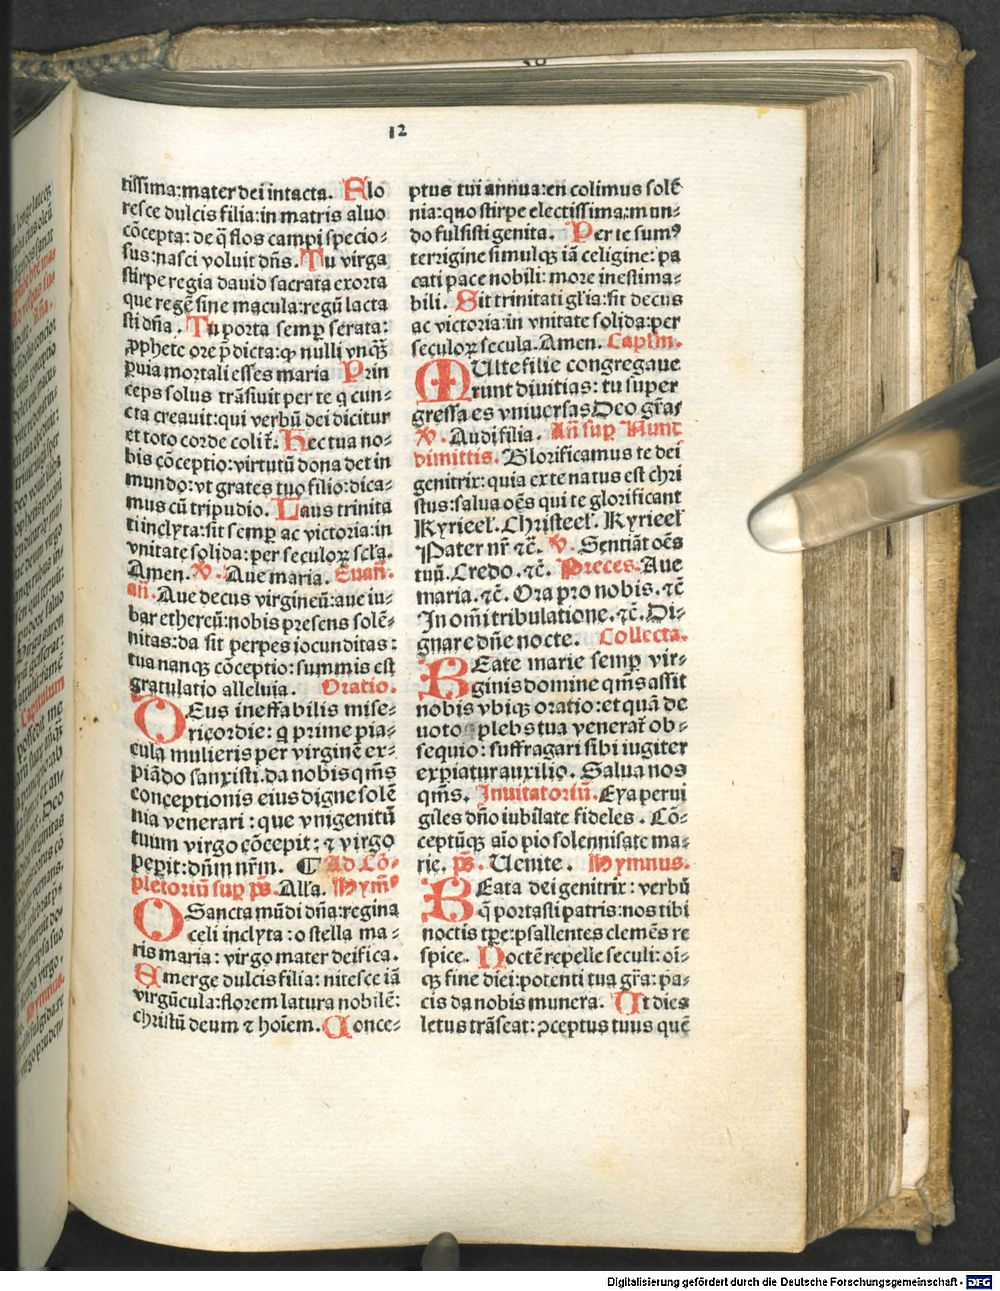 12
tissima:mater dei intacta. Flo
resce dulcis filia:in matris aluo
cõcepta: de q̃ flos campi specio⸗
sus:nasci voluit dñs. Tu virga
stirpe regia dauid sacrata exorta
que regẽ sine macula:regũ lacta
sti dña. Tu porta semꝑ serata:
ꝓphete ore p̃dicta:ꝙ nulli vnꝙ̃
ꝑuia mortali esses maria Prin
ceps solus trãsiuit per te q cun⸗
cta creauit:qui verbũ dei dicitur
et toto corde colit̃. Hec tua no⸗
bis cõceptio:virtutũ dona det in
mundo:vt grates tuo filio:dica⸗
mus cũ tripudio. Laus trinita
ti inclyta:sit semꝑ ac victoria:in
vnitate solida:per seculoꝝ scl̃a.
Amen. ℣. Aue maria. Euañ.
añ. Aue decus virgineũ:aue iu⸗
bar ethereũ:nobis presens solẽ⸗
nitas:da sit perpes iocunditas:
tua nanqꝫ cõceptio:summis est
gratulatio alleluia. Oratio.
DEus ineffabilis mise⸗
ricordie: q prime pia⸗
cula mulieris per virginẽ ex⸗
piãdo sanxisti.da nobis q̃ms
conceptionis eius digne solẽ
nia venerari: que vnigenitũ
tuum virgo cõcepit: ⁊ virgo
peperit:dñm nr̃m. ¶ Ad Cõ⸗
pletoriũ sup ps̃. All'a. Hym̃ꝰ
OSancta mũdi dña:regina
celi inclyta: o stella ma⸗
ris maria: virgo mater deifica.
Emerge dulcis filia: nitesce iã
virgũcula:florem latura nobilẽ:
christũ deum ⁊ hoĩem. Conce⸗
ptus tui annua:en colimus solẽ
nia:quo stirpe electissima:mun⸗
do fulsisti genita. Per te sumꝰ
terrigine simulqꝫ iã celigine: pa
cati pace nobili: more inestima⸗
bili. Sit trinitati gl̃ia:sit decus
ac victoria:in vnitate solida:per
seculoꝝ secula. Amen. Capl̃m.
MUlte filie congregaue
runt diuitias: tu super
gressa es vniuersas Deo gr̃as
℣. Audi filia. Añ sup Nunc
dimittis. Glorificamus te dei
genitrix: quia ex te natus est chri
stus:salua oẽs qui te glorificant
Kyrieel̃. Christeel̃. Kyrieel̃
Pater nr̃ ⁊c̃. ℣. Sentiãt oẽs
tuũ. Credo. ⁊c̃. Preces. Aue
maria. ⁊c̃. Ora pro nobis. ⁊c̃
In om̃i tribulatione. ⁊c̃. Di⸗
gnare dñe nocte. Collecta.
BEate marie semꝑ vir⸗
ginis domine q̃ms assit
nobis vbiqꝫ oratio:et quã de
uoto plebs tua venerat̃ ob⸗
sequio: suffragari sibi iugiter
experiatur auxilio. Salua nos
q̃ms. Inuitatoriũ. Eya perui
giles dño iubilate fideles. Cõ⸗
ceptũqꝫ aĩo pio solennisate ma⸗
rie. ps̃. Uenite. Hymnus.
BEata dei genitrix: verbũ
q̃ portasti patris:nos tibi
noctis tp̃e:psallentes clemẽs re
spice. Noctẽ repelle seculi: oĩ⸗
qꝫ fine diei:potenti tua gr̃a: pa⸗
cis da nobis munera. Ut dies
letus trãseat: ꝯceptus tuus quẽ
Digitalisierung gefördert durch die Deutsche Forschungsgemeinschaft - DFG